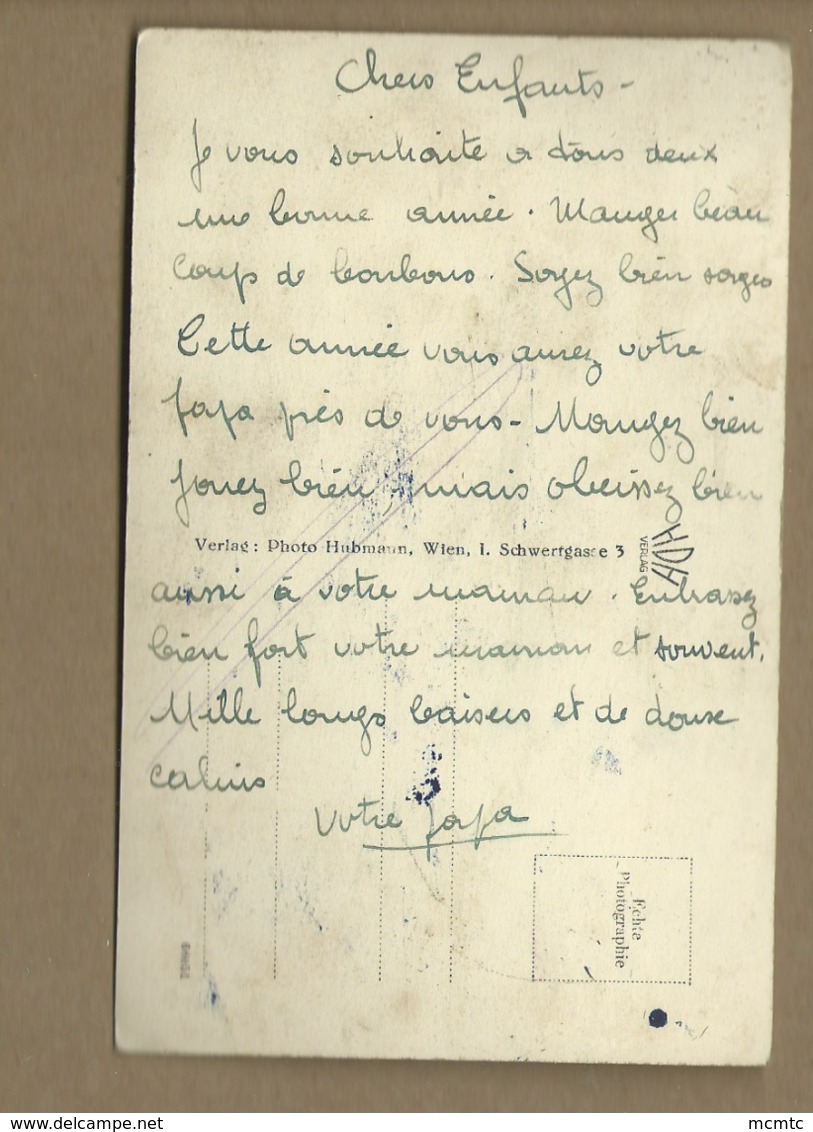 Chers Enfants -
Je vous souhaite a tous deux
une bonne année. Manger beau
coup de bonbons. Soyez bien sages
Cette année vous aurez votre
papa près de vous - Mangez bien
Jouez bien, mais obeissez bien
Verlag: Photo Hubmann, Wien, I. Schwertgasse 3
VERLAG
aussi à votre maman. Embrassez
bien fort votre maman et souvent.
Mille longs baisers et de doux
calins
Votre papa
Echte
Photographie
delcampe.net
mcmtc